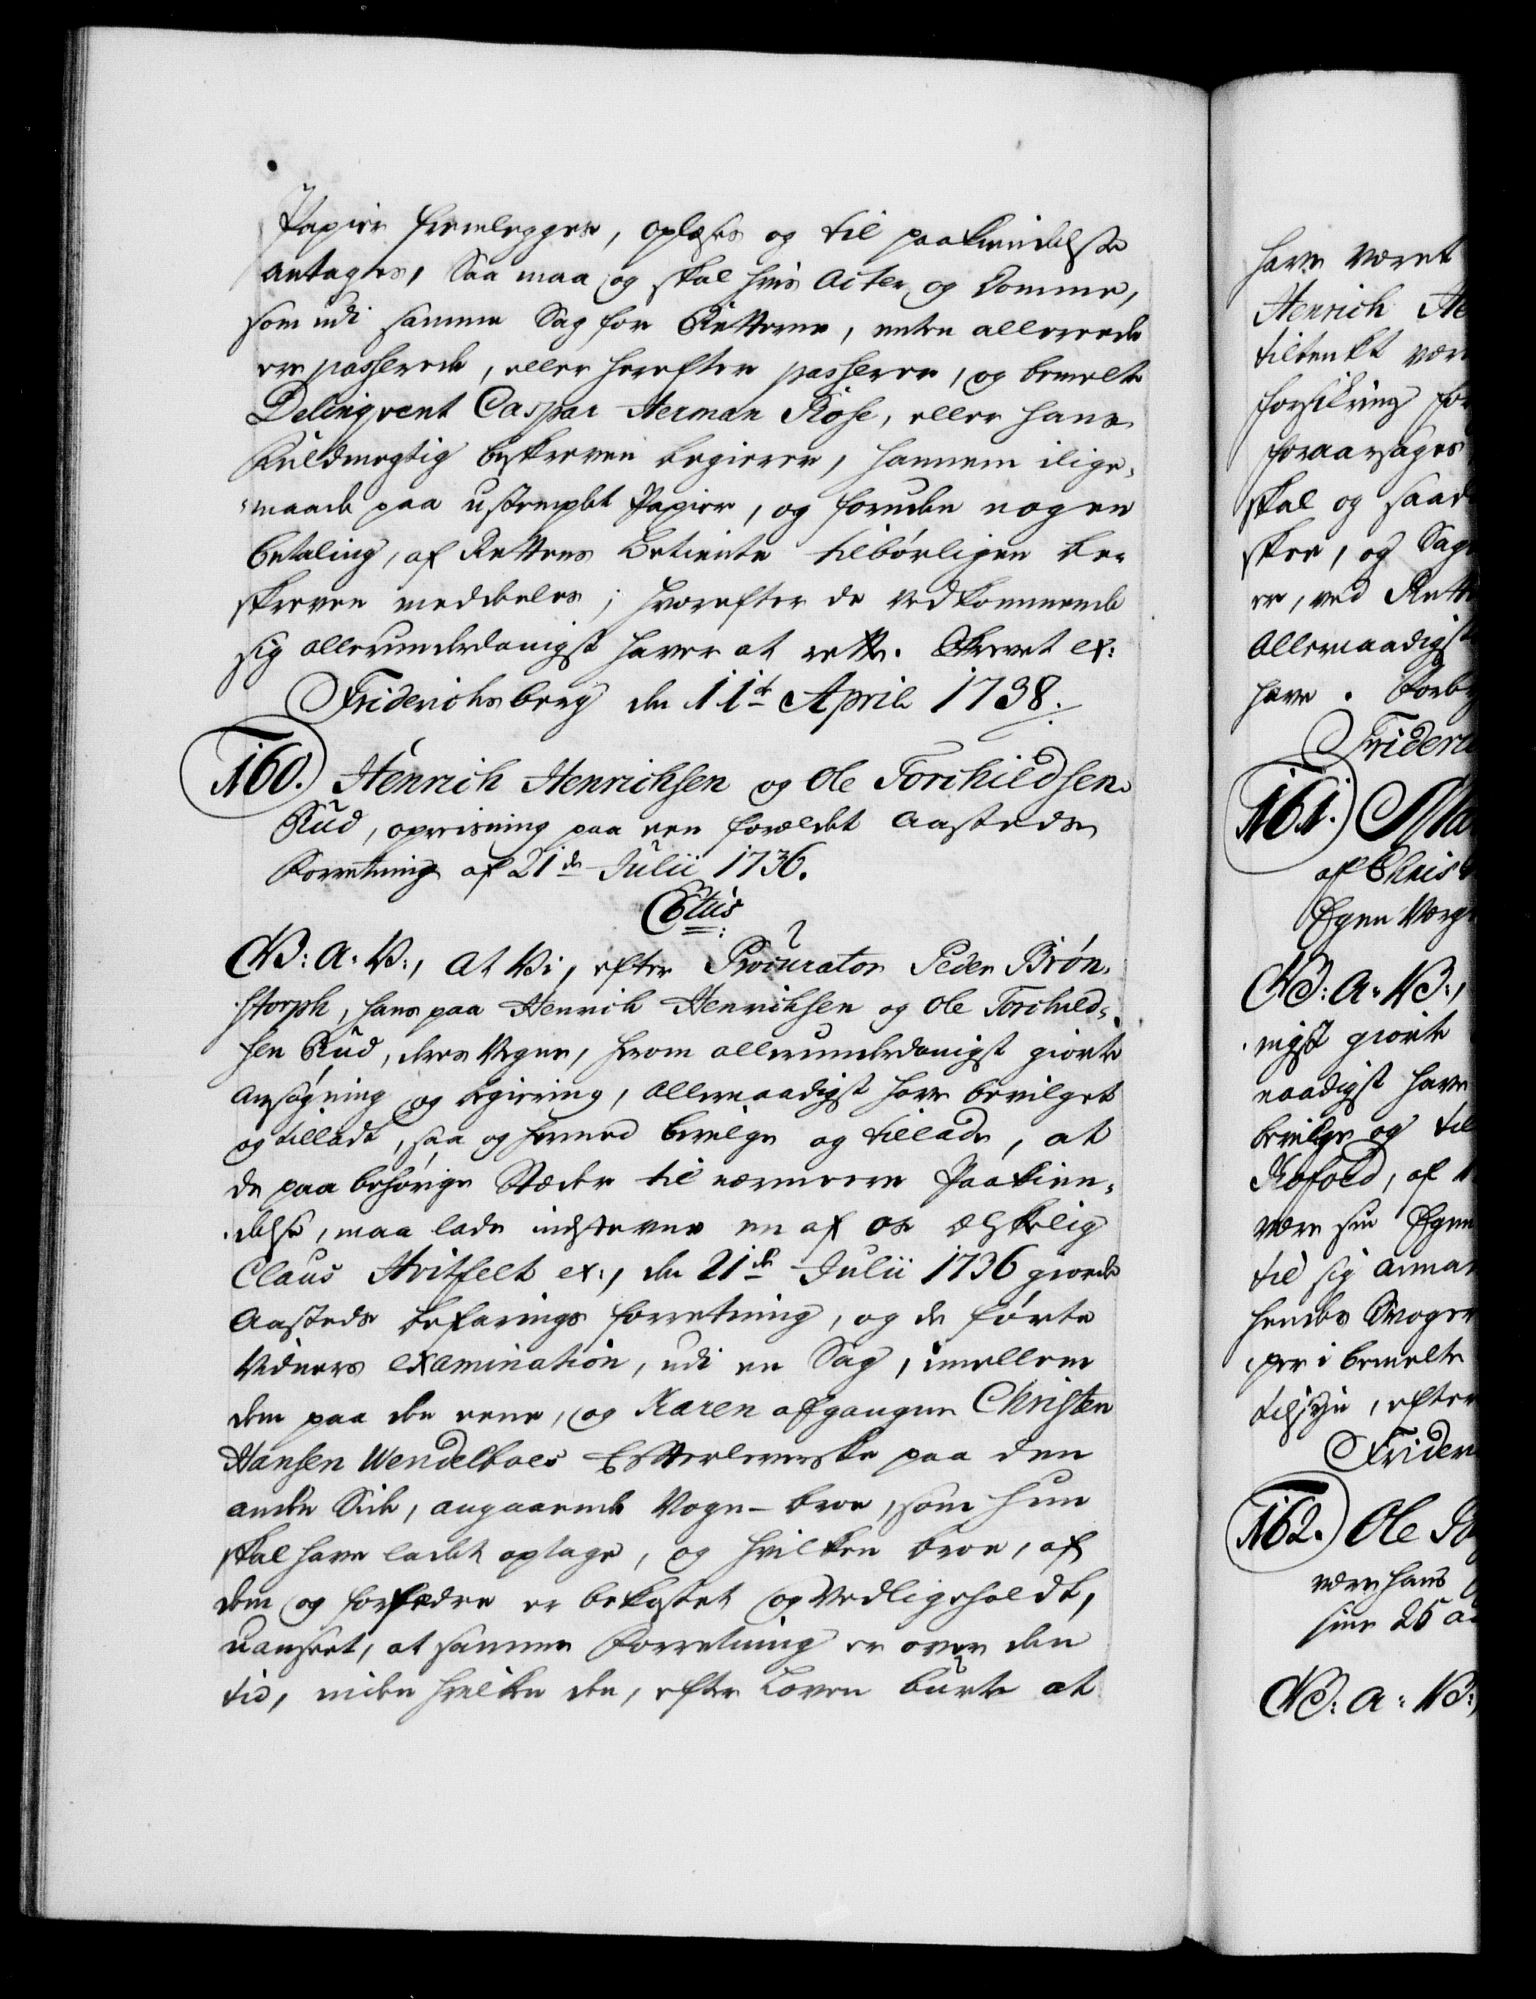 Papiir fremlegges, oplæses og til paakiendelse
antages, Saa maa og skal hvis Acter og Domme,
som udi samme Sag for Retterne, enten allereede
ere passerede, eller herefter passerer, og bemelte
Delinqvent Caspar Herman Rose, eller hans
Fuldmegtig beskreven begierer, hannem i lige-
maade paa ustemplet Papiir, og foruden nogen
betaling, af Rettens Betiente tilbørligen be-
skreven meddeeles; hvorefter de vedkommende
sig allerunderdanigst haver at rette. Skrevet ex:
Friderichsberg den 11te April 1738.
160. Henrich Henrichsen og Ole Torchildsen
Rud, opreisning paa een forældet Aasteds
Forretning af 21de Julii 1736.
C6tus
W: A: V:, At Vi, efter Procurator Peder Brøn-
storph, hans paa Henrich Henrichsen og Ole Torchild-
sen Rud, deres Vegne, herom allerunderdanigst giorte
ansøgning og begiering, allernaadigst have bevilget
og tilladt, saa og hermed bevilge og tillade, at
de paa behørige Stæder til nærmere Paakien-
delse, maa lade indstevne en af os elskelig
Claus Hvitfelt ex:, den 21de Julii 1736 giorde
Aasteds befarings forretning, og de førte
Vidners examination, udi en Sag, imellem
dem paa den eene, og Karen afgangne Christen
Hansen Wendelboes Efterleverske paa den
anden Side, angaaende Vogn-broe, som hun
skal have ladet optage, og hvilken broe, af
dem og forfædre er bekostet og Vedligeholdt,
uanseet, at samme Forretning er over den
tid, inden hvilken den, efter Loven burte at
have været
Henrich He
tiltenkt vær
forsikring for
foraarsages
skal og saad
skee, og Sag
er, ved Rett
Allernaadigst
have. Forby
Frideri
161. Ma
af Christ
Egen Værge
W: A: V:,
nigst giorte
naadigst have
bevilge og til
Kofoed, af
være sin Egen
til sig anna
hendes Svoger
per i bemelte
tilsyn, efter
Frider
162. Ole
være hans
sine 25 aa
W: A: V:,